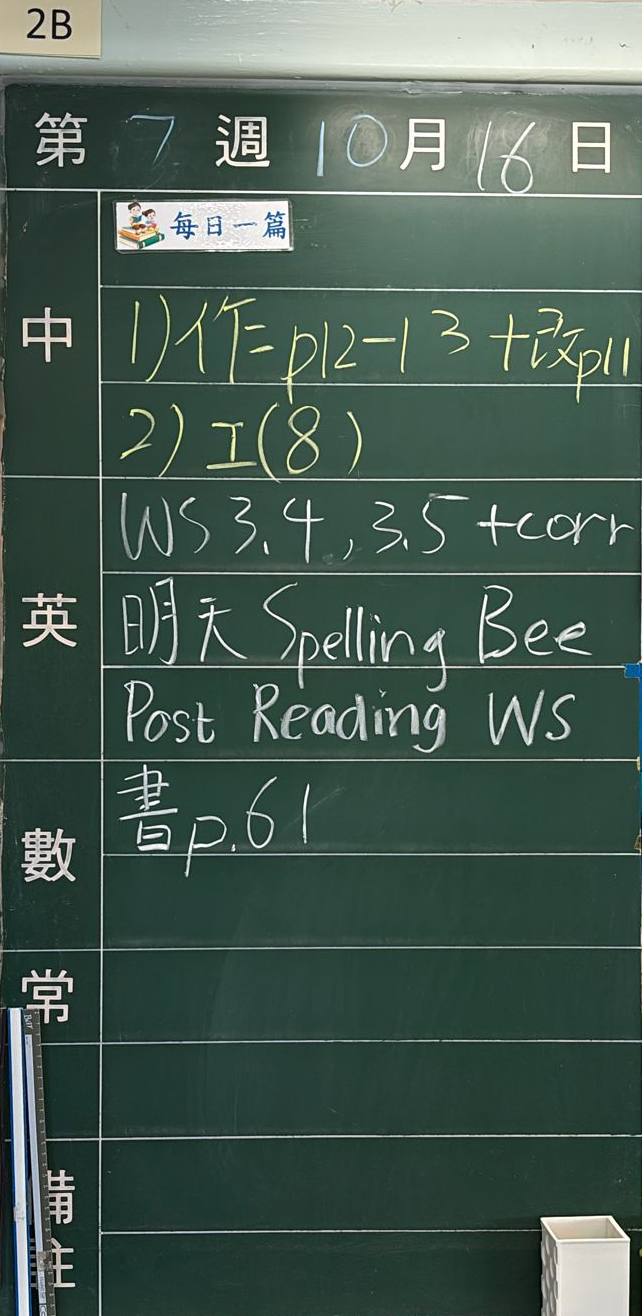 2B
第 7 週 10 月 16 日
每日一篇
中
1) 作= p12-13 +改p11
2) 工(8)
英
WS 3.4, 3.5 +corr
明天 Spelling Bee
Post Reading WS
數
書 p.61
常
備註